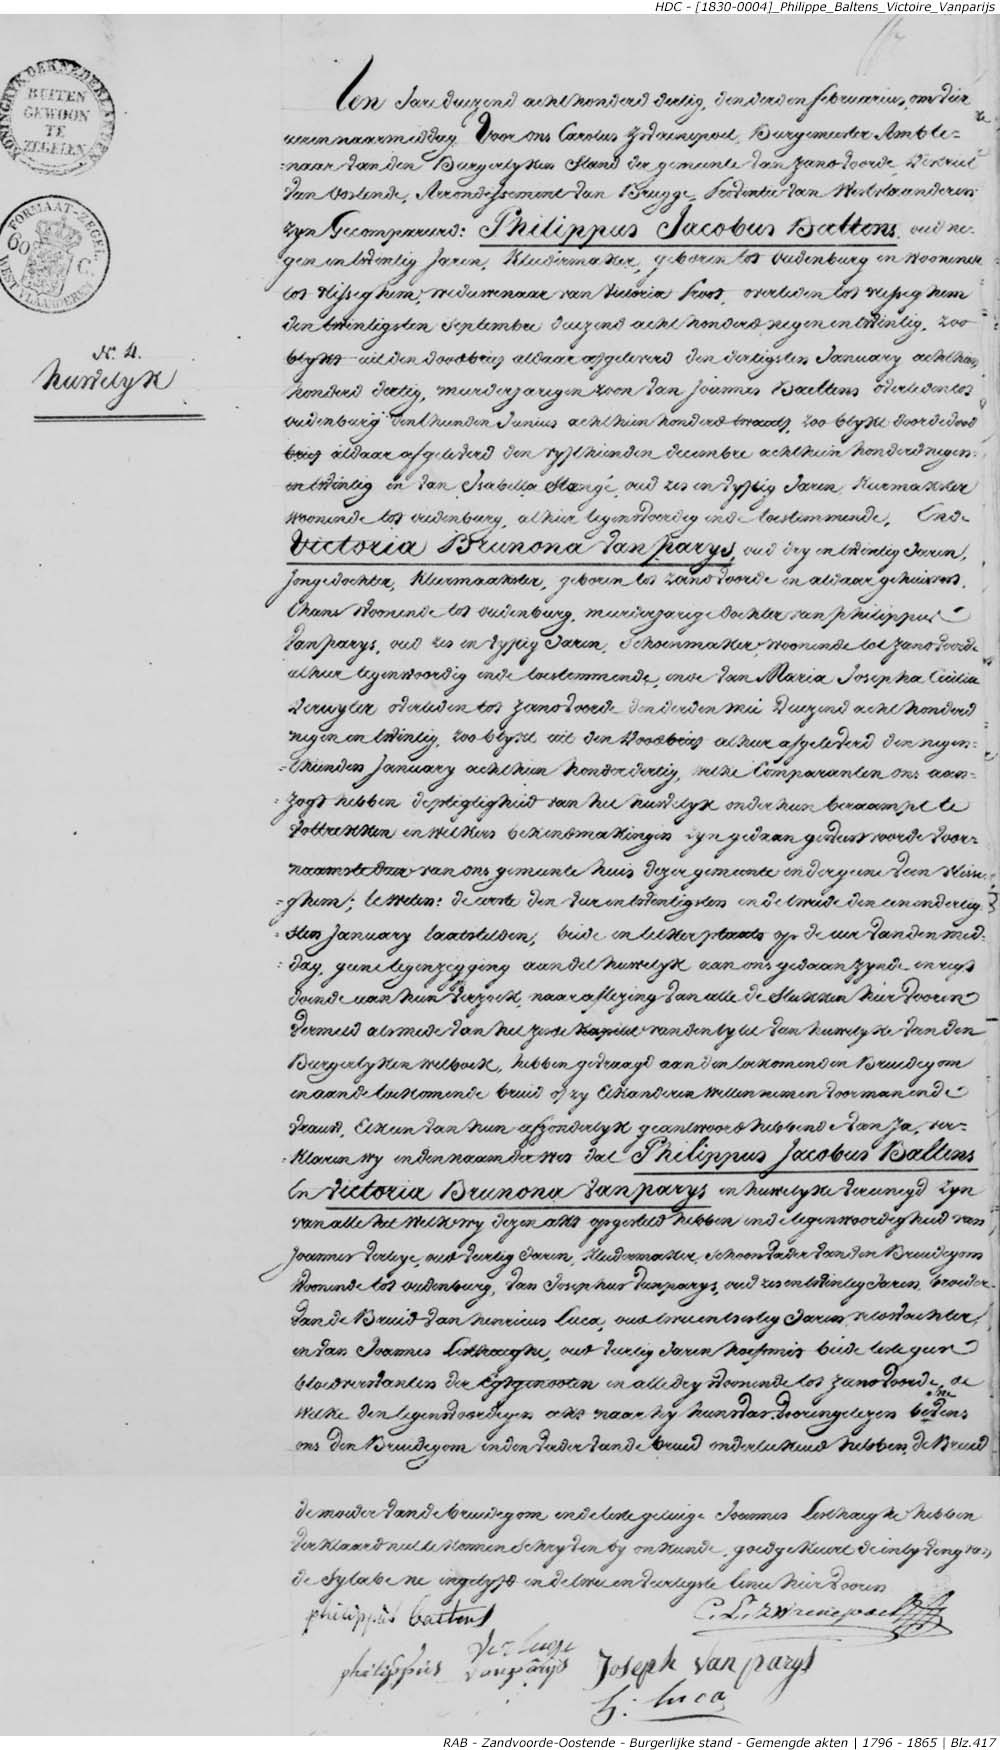 HDC - [1830-0004]_Philippe_Baltens_Victoire_Vanparijs
KONINGRYK DER NEDERLANDEN
BUITEN
GEWOON
TE
ZEGELEN
FORMAAT-ZEGEL
60 C.
WEST VLAANDEREN
N. 4.
huwelyk
Den Jare duizend acht honderd dertig, den derden februarius, om vier
uren naarmiddag Voor ons Carolus Zwaenepoel, Burgemeester Ambte=
=naar van den Burgerlyken Stand der gemeente van Zandvoorde, District
van Oostende, Arrondissement van Brugge, Provintie van Westvlaanderen
zyn Gecompareerd: Philippus Jacobus Baltens, oud ne-
gen en twintig Jaren, Kleedermaker, geboren tot oudenburg en woonende
tot Vlisseghem, weduwenaar van Victoria Proot, overleden tot vlisseghem
den twintigsten September duizend acht honderd negen en twintig, zoo
blykt uit den doodbrief aldaar afgeleverd den dertigsten January achthien
honderd dertig, meerderjarigen zoon van Joannes Baeltens overleden tot
oudenburg den thienden Junius achthien honderd zoo blykt door de dood
brief aldaar afgeleverd den vyfthienden decembre achthien honderd negen=
en twintig en van Isabella Stangé, oud zes en vyftig Jaren,
woonende tot oudenburg, alhier tegenwoordig ende toestemmende, Ende
Victoria Brunona Van parys, oud dry en twintig Jaren,
Jongedochter, Kleermaakster, geboren tot Zandvoorde en aldaar gehuisvest,
thans woonende tot oudenburg, meerderjarige dochter van philippus
Van parys, oud zes en vyftig Jaren, Schoenmaker, woonende tot Zandvoorde
alhier tegenwoordig ende toestemmende, ende van Maria Josepha Cicilia
overleden tot Zandvoorde den derden mei duizend acht honderd
negen en twintig, zoo blykt uit den doodbrief alhier afgeleverd den negen=
=thienden January achthien honderd dertig, welke Comparanten ons aan=
zogt hebben de pligtigheid van het huwelyk onder hun beraampt te
voltrekken en welkers bekendmakingen zyn gedaan geweest voor de voor=
naamste deur van ons gemeente huis dezer gemeente en dergene van Vlisse
=ghem; te weten: de eerste den vier en twintigsten en de tweede den een en dertig
=sten January laatstleden, beide en telker plaats op de uur van den mid=
=dag, geene tegenzegging aan het huwelyk aan ons gedaan zynde en regt
doende aan hun verzoek, naar aflezing van alle de Stukken hier vooren
vermeld alsmede van het zesde kapittel van den tytel van huwelyke van den
Burgerlyken wetboek, hebben gevraagd aan den toekomenden Bruidegom
en aan de toekomende bruid of zy Elkanderen willen nemen voor man ende
vrouw, Elk een van hun afzonderlyk geantwoord hebbende van Ja, ver=
=klaren wy in den naam der wet dat Philippus Jacobus Baltens
En Victoria Brunona Vanparys in huwelyke vereenigd zyn
van alle het welke wy dezen akte opgesteld hebben in de tegenwoordigheid van
Joannes Verleye, oud veertig Jaren, Kleedermaker, Schoonvader van den Bruidegom
woonende tot oudenburg, van Josephus Vanparys, oud zes en twintig Jaren, broeder
van de Bruid van henricus Luca, oud twee en veertig Jaren,
en van Joannes oud veertig Jaren beide leste geen
bloedverwanten der Egtgenooten en alle dry woonende tot Zandvoorde, de
welke den tegenwoordigen akte naar hy hun was voorengelezen
ons den Bruidegom en den vader van de bruid onderteekend hebben, de Bruid
de moeder van de bruidegom en de leste getuige Joannes hebben
verklaard niet te konnen Schryven by onkunde, goedgekeurd de inbyvoeging van
de Sylabe ne ingelyfd in de twee en veertigste linie hier vooren
philippus baltens
C. L. Zwaenepoel
Verleye
philippus vanparys
Joseph Van parys
h: luca
RAB - Zandvoorde-Oostende - Burgerlijke stand - Gemengde akten | 1796 - 1865 | Blz.417